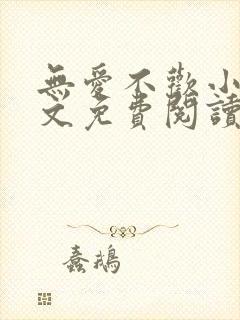 無愛不歡小
文免費閱讀
蠢鵝